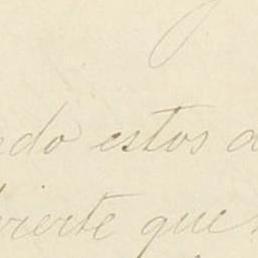 do estos
vierte que